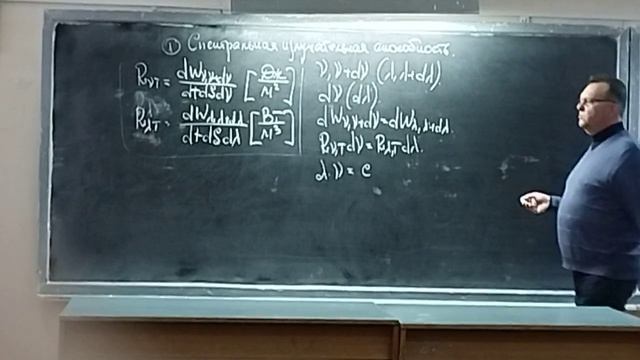 ① Спектральная излучательная способность.
R_νT = dW_ν,ν+dν / dt dS dν [Дж / м²]
R_λT = dW_λ,λ+dλ / dt dS dλ [Вт / м³]
ν, ν+dν (λ, λ+dλ).
dν (dλ).
dW_ν,ν+dν = dW_λ,λ+dλ.
R_ν,T dν = R_λ,T dλ.
λ·ν = c